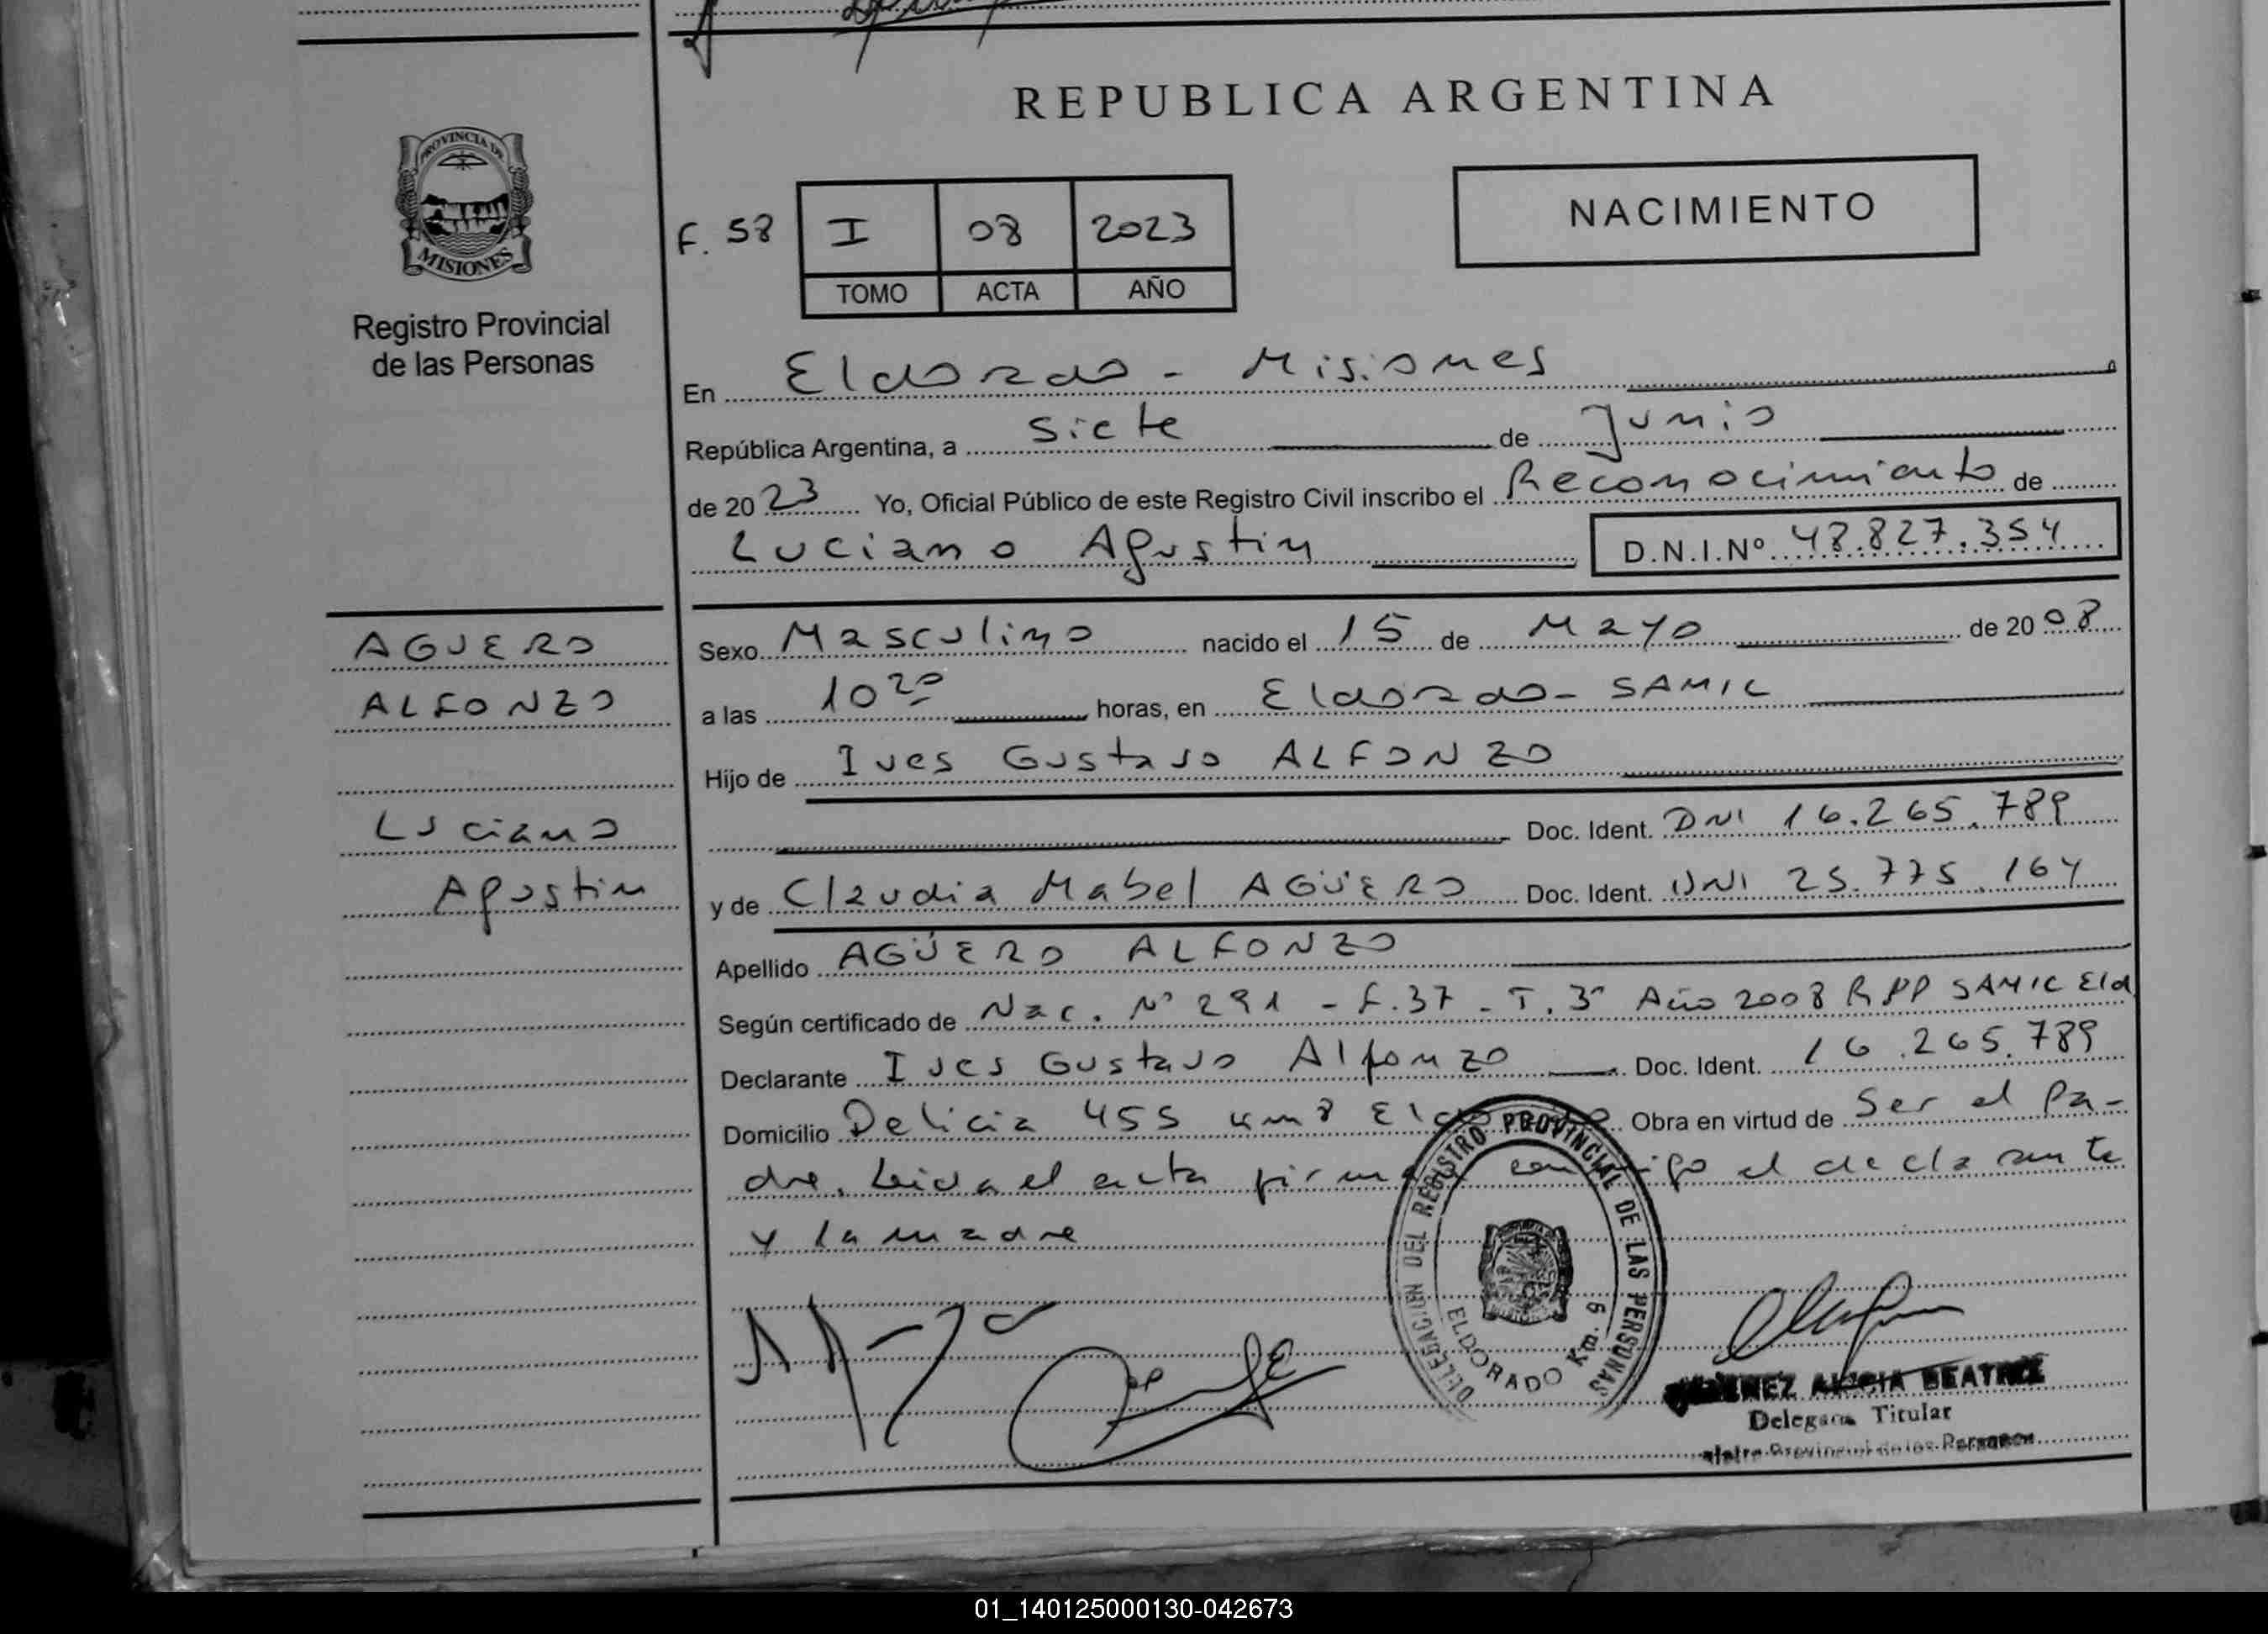 REPUBLICA ARGENTINA
PROVINCIA DE
MISIONES
Registro Provincial
de las Personas
F. 58 I 08 2023
TOMO ACTA AÑO
NACIMIENTO
En Eldorado - Misiones
República Argentina, a siete de Junio
de 2023 Yo, Oficial Público de este Registro Civil inscribo el Reconocimiento de
Luciano Agustin D.N.I.Nº 48.827.354
AGUERO
ALFONZO
Luciano
Agustin
Sexo Masculino nacido el 15 de Mayo de 2008
a las 10 20 horas, en Eldorado - SAMIC
Hijo de Ives Gustavo ALFONZO
Doc. Ident. DNI 16.265.789
y de Claudia Mabel AGÜERO Doc. Ident. DNI 25.775.164
Apellido AGÜERO ALFONZO
Según certificado de Nac. Nº 291 - F.37 - T. 3º Año 2008 RPP SAMIC Eld
Declarante Ives Gustavo Alfonzo Doc. Ident. 16.265.789
Domicilio Delicia 455 km 8 Eldorado Obra en virtud de Ser el Pa-
dre. Leida el acta firma conmigo el declarante
y la madre
DELEGACION DEL REGISTRO PROVINCIAL DE LAS PERSONAS
ELDORADO Km. 9
ALICIA BEATRIZ
Delegada Titular
Provincial de las Personas
01_140125000130-042673